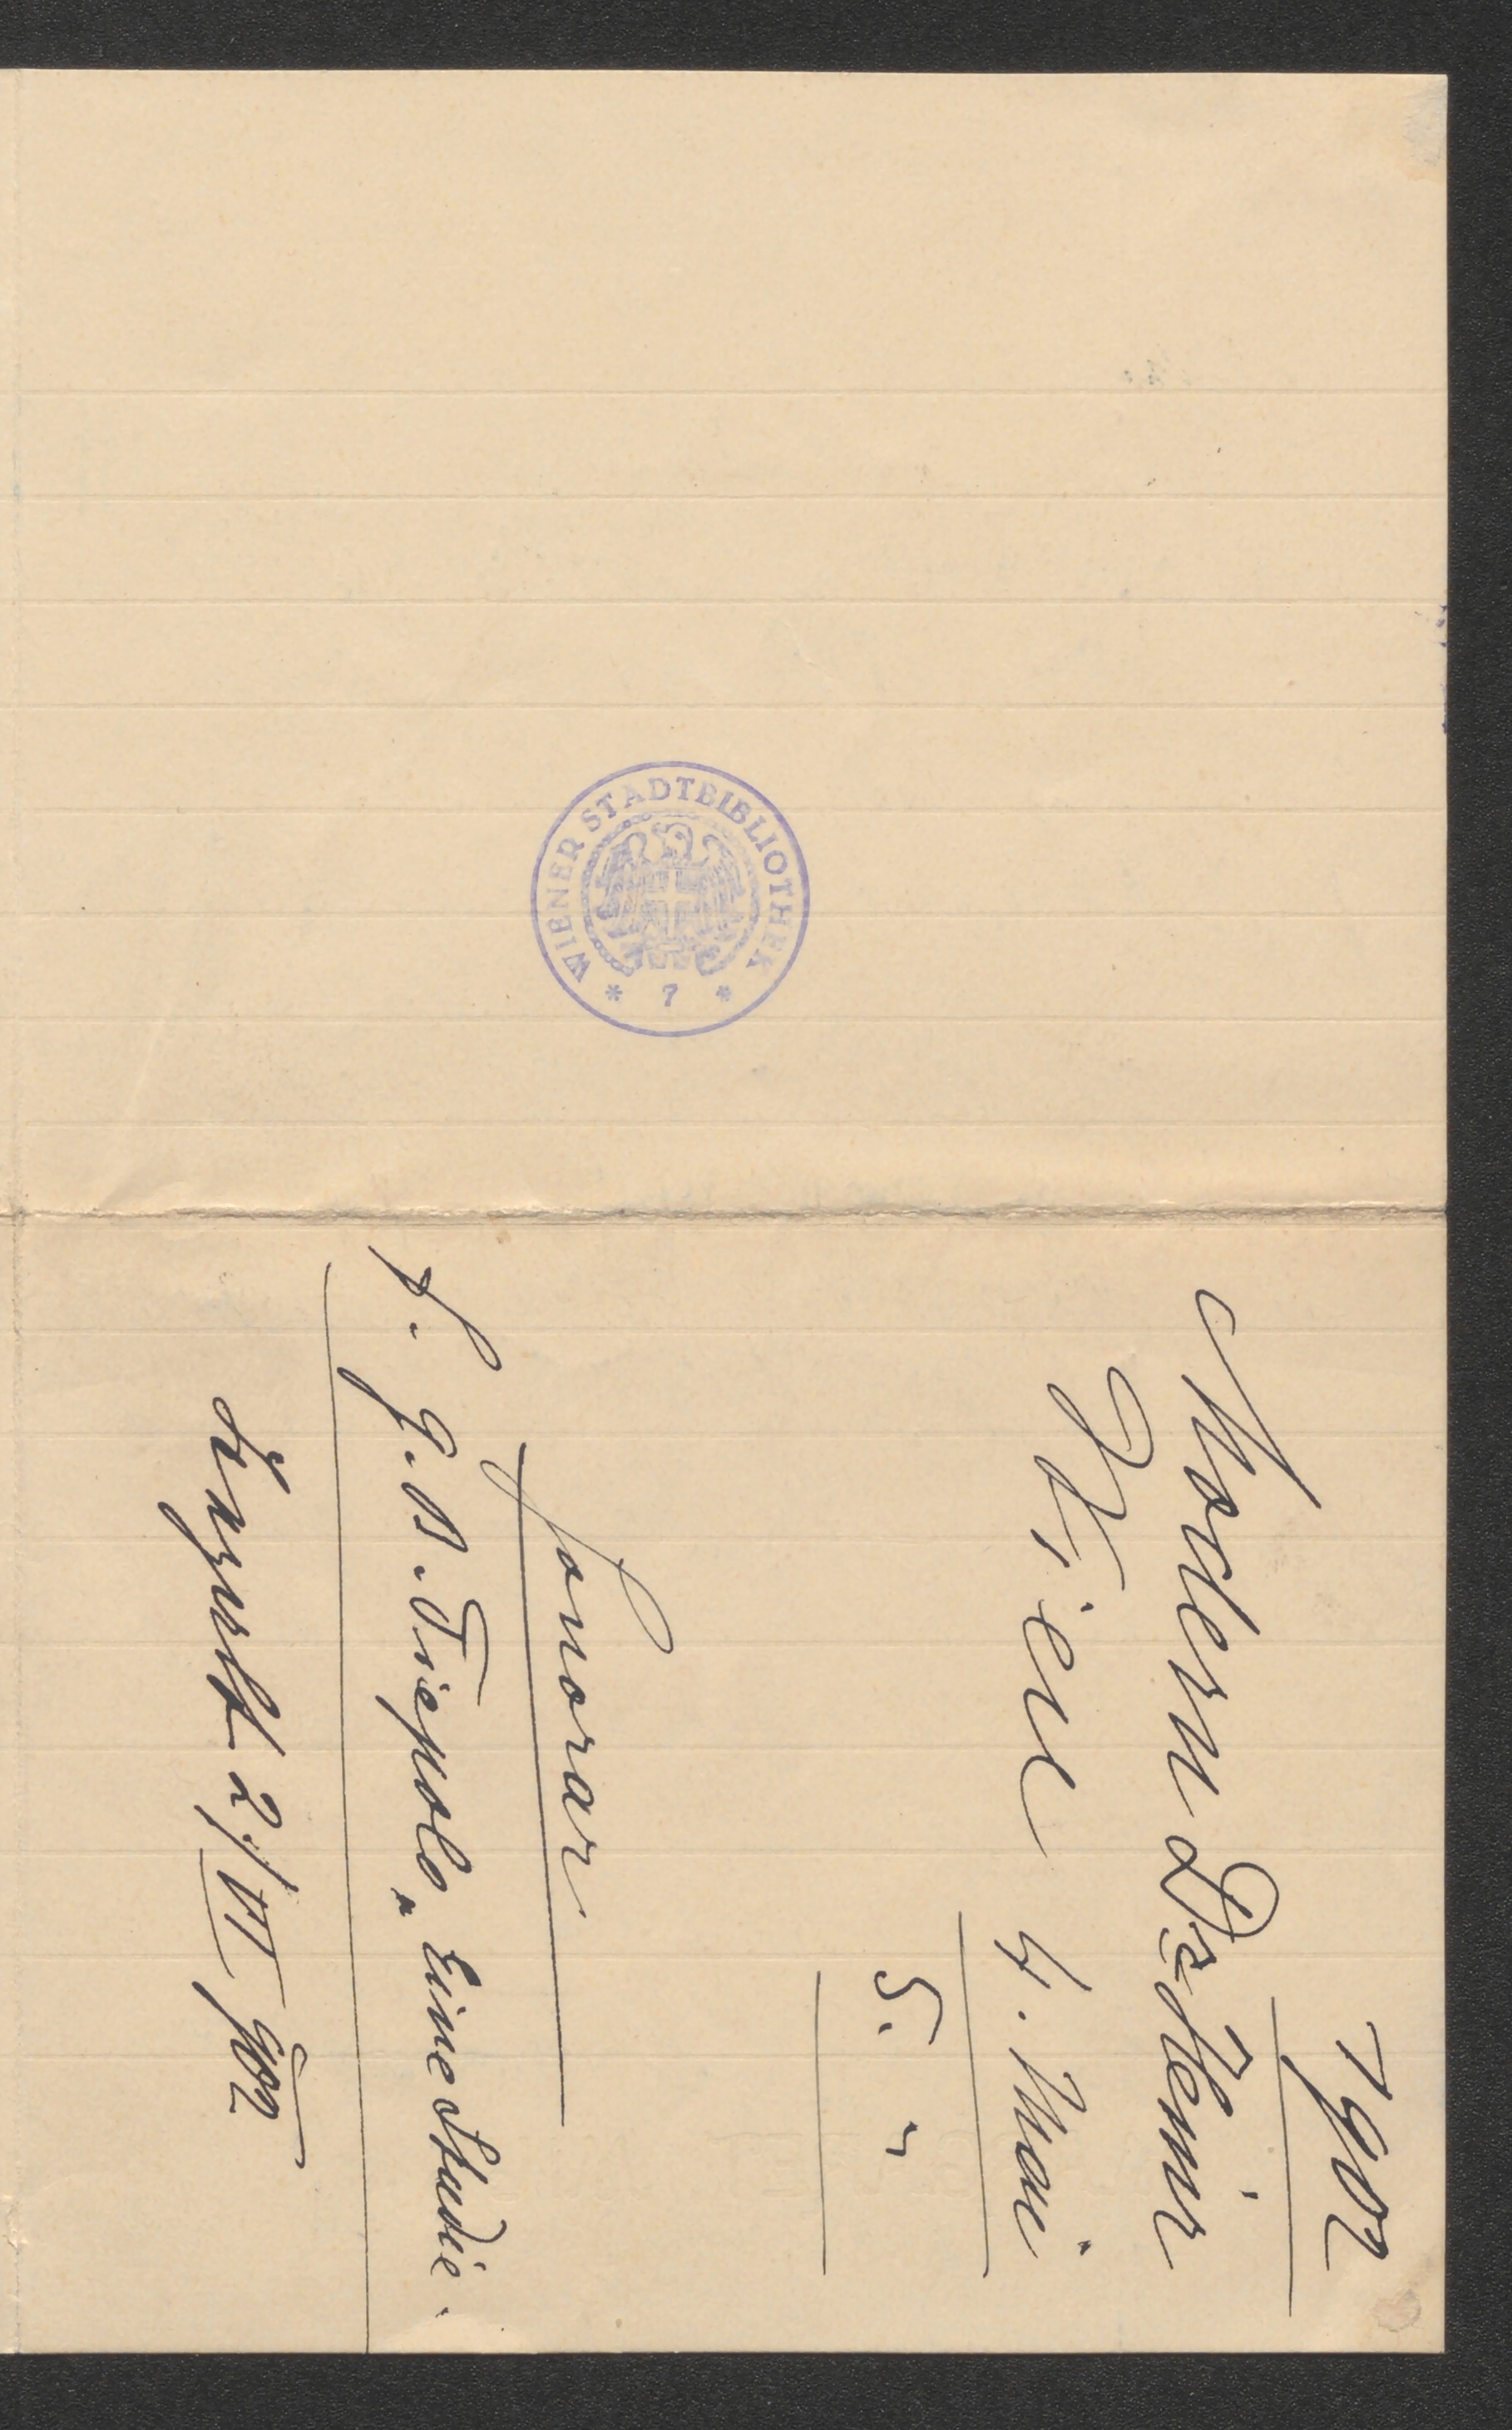 1902
Modern Dr Heinr
Wien 4. Mai
5. "
Honorar
f. G. B. Tiepolo „ Eine Studie.
2/VI 902
WIENER STADTBIBLIOTHEK
* 7 *